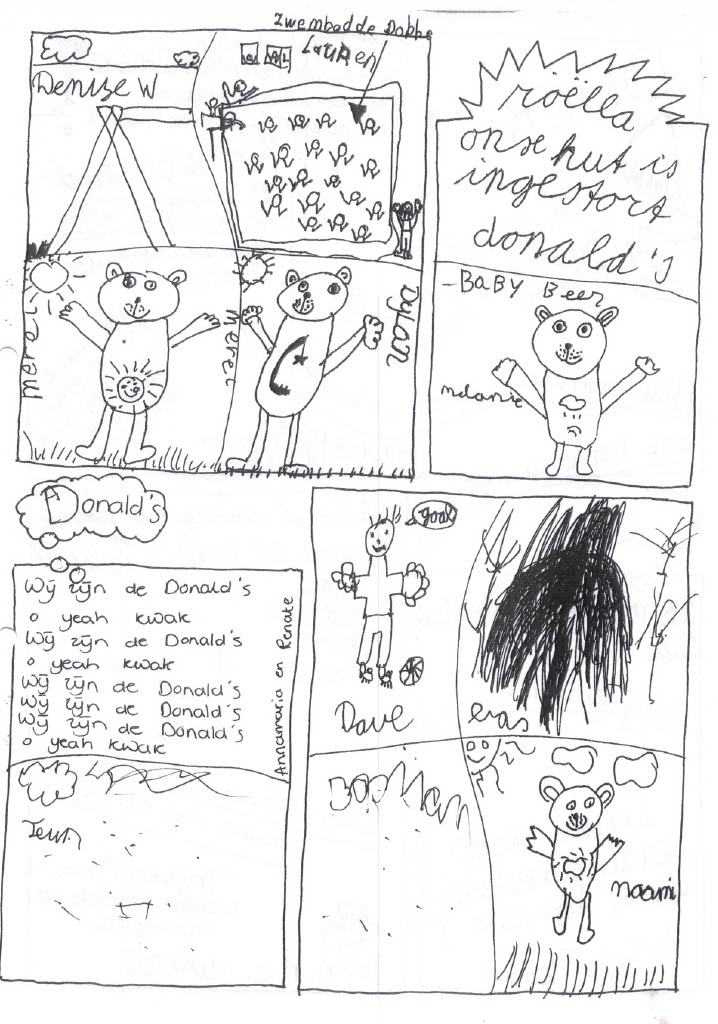 Zwembad de Dobbe
Lauren
Denise W
röëlla
onse hut is
ingestort
donald's
merel
merel
Dylan
-BaBY Beer
melanie
Donald's
Wij zijn de Donald's
o yeah kwak
Wij zijn de Donald's
o yeah kwak
Wij zijn de Donald's
Wij zijn de Donald's
Wij zijn de Donald's
o yeah kwak
Annamaria en Renate
goal
Dave
eras
naomi